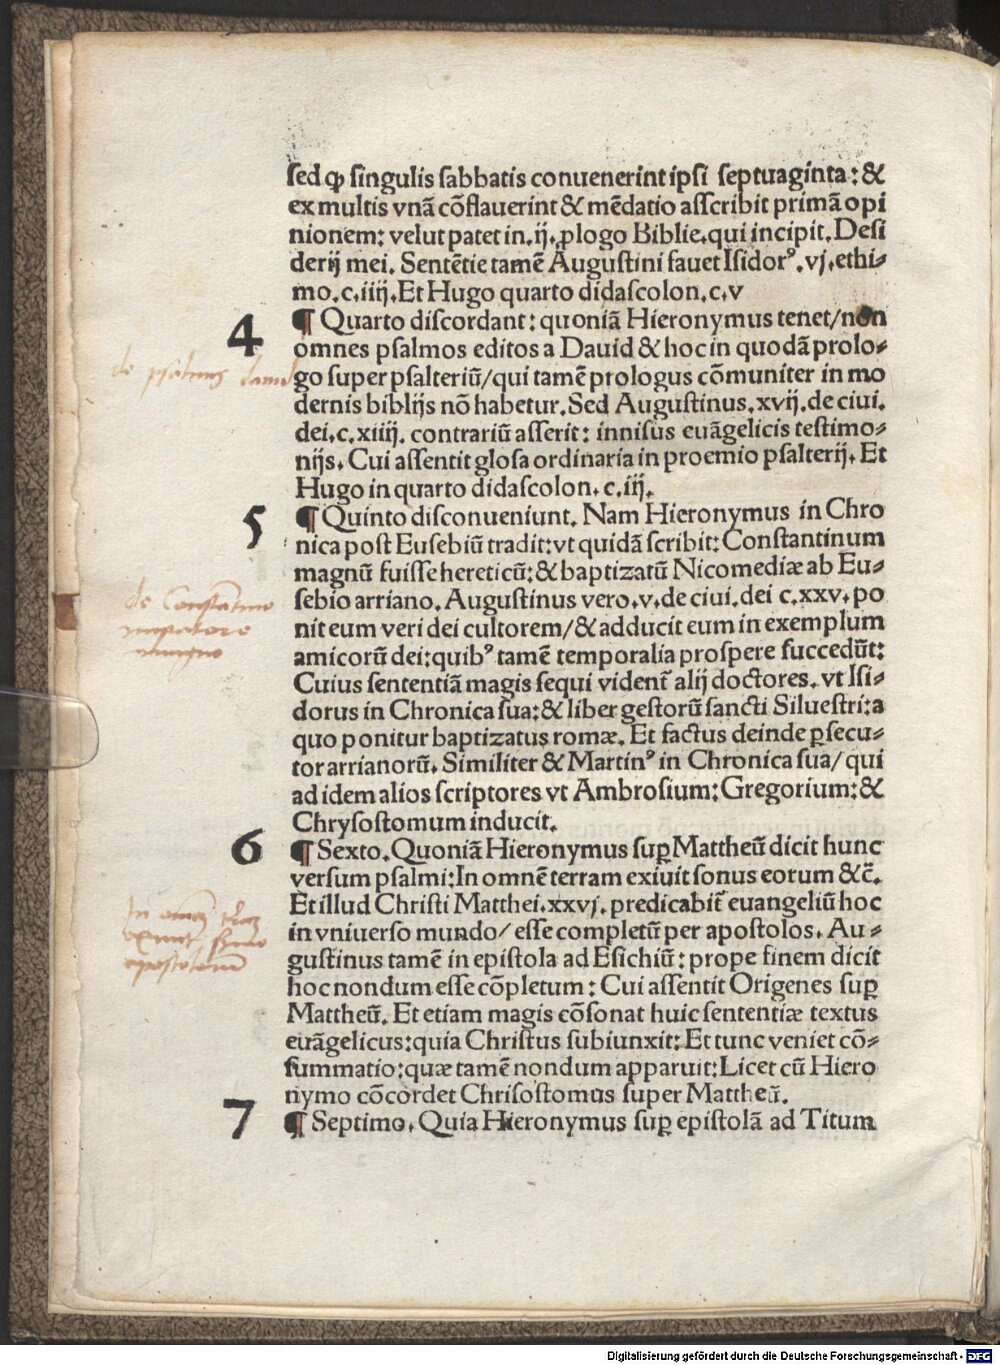 sed ꝙ singulis sabbatis conuenerint ipsi septuaginta: &
ex multis vnā cōflauerint & mēdatio asscribit primā opi
nionem: velut patet in.ij.ꝓlogo Biblie.qui incipit.Desi
derij mei. Sentētie tamē Augustini fauet Isidorꝰ.vj.ethi⸗
mo.c.iiij.Et Hugo quarto didascolon.c.v
4
¶ Quarto discordant: quoniā Hieronymus tenet/non
omnes psalmos editos a Dauid & hoc in quodā prolo⸗
de psalmis dauid
go super psalteriū/qui tamē prologus cōmuniter in mo
dernis biblijs nō habetur.Sed Augustinus.xvij.de ciui.
dei.c.xiiij. contrariū asserit: innisus euāgelicis testimo⸗
nijs. Cui assentit glosa ordinaria in proemio psalterij. Et
Hugo in quarto didascolon. c.iij.
5
¶ Quinto disconueniunt. Nam Hieronymus in Chro
nica post Eusebiū tradit:vt quidā scribit: Constantinum
magnū fuisse hereticū:& baptizatū Nicomediæ ab Eu⸗
de Constantino
sebio arriano. Augustinus vero.v.de ciui.dei c.xxv.po
imperatore
nit eum veri dei cultorem/& adducit eum in exemplum
magno
amicorū dei:quibꝰ tamē temporalia prospere succedūt:
Cuius sententiā magis sequi vident̄ alij doctores. vt Isi⸗
dorus in Chronica sua:& liber gestorū sancti Siluestri:a
quo ponitur baptizatus romæ. Et factus deinde ꝑsecu⸗
tor arrianorū. Similiter & Martinꝰ in Chronica sua/ qui
ad idem alios scriptores vt Ambrosium: Gregorium: &
Chrysostomum inducit.
6
¶ Sexto. Quoniā Hieronymus suꝑ Mattheū dicit hunc
versum psalmi:In omnē terram exiuit sonus eorum &c̄.
Et illud Christi Matthei.xxvj. predicabit̄ euangeliū hoc
In omnem terram
in vniuerso mundo/ esse completū per apostolos. Au⸗
exiuit sonus
gustinus tamē in epistola ad Esichiū: prope finem dicit
apostolorum
hoc nondum esse cōpletum: Cui assentit Origenes suꝑ
Mattheū. Et etiam magis cōsonat huic sententiæ textus
euāgelicus:quia Christus subiunxit: Et tunc veniet cō⸗
summatio:quæ tamē nondum apparuit: Licet cū Hiero
nymo cōcordet Chrisostomus super Mattheū.
7
¶ Septimo. Quia Hieronymus suꝑ epistolā ad Titum
Digitalisierung gefördert durch die Deutsche Forschungsgemeinschaft - DFG